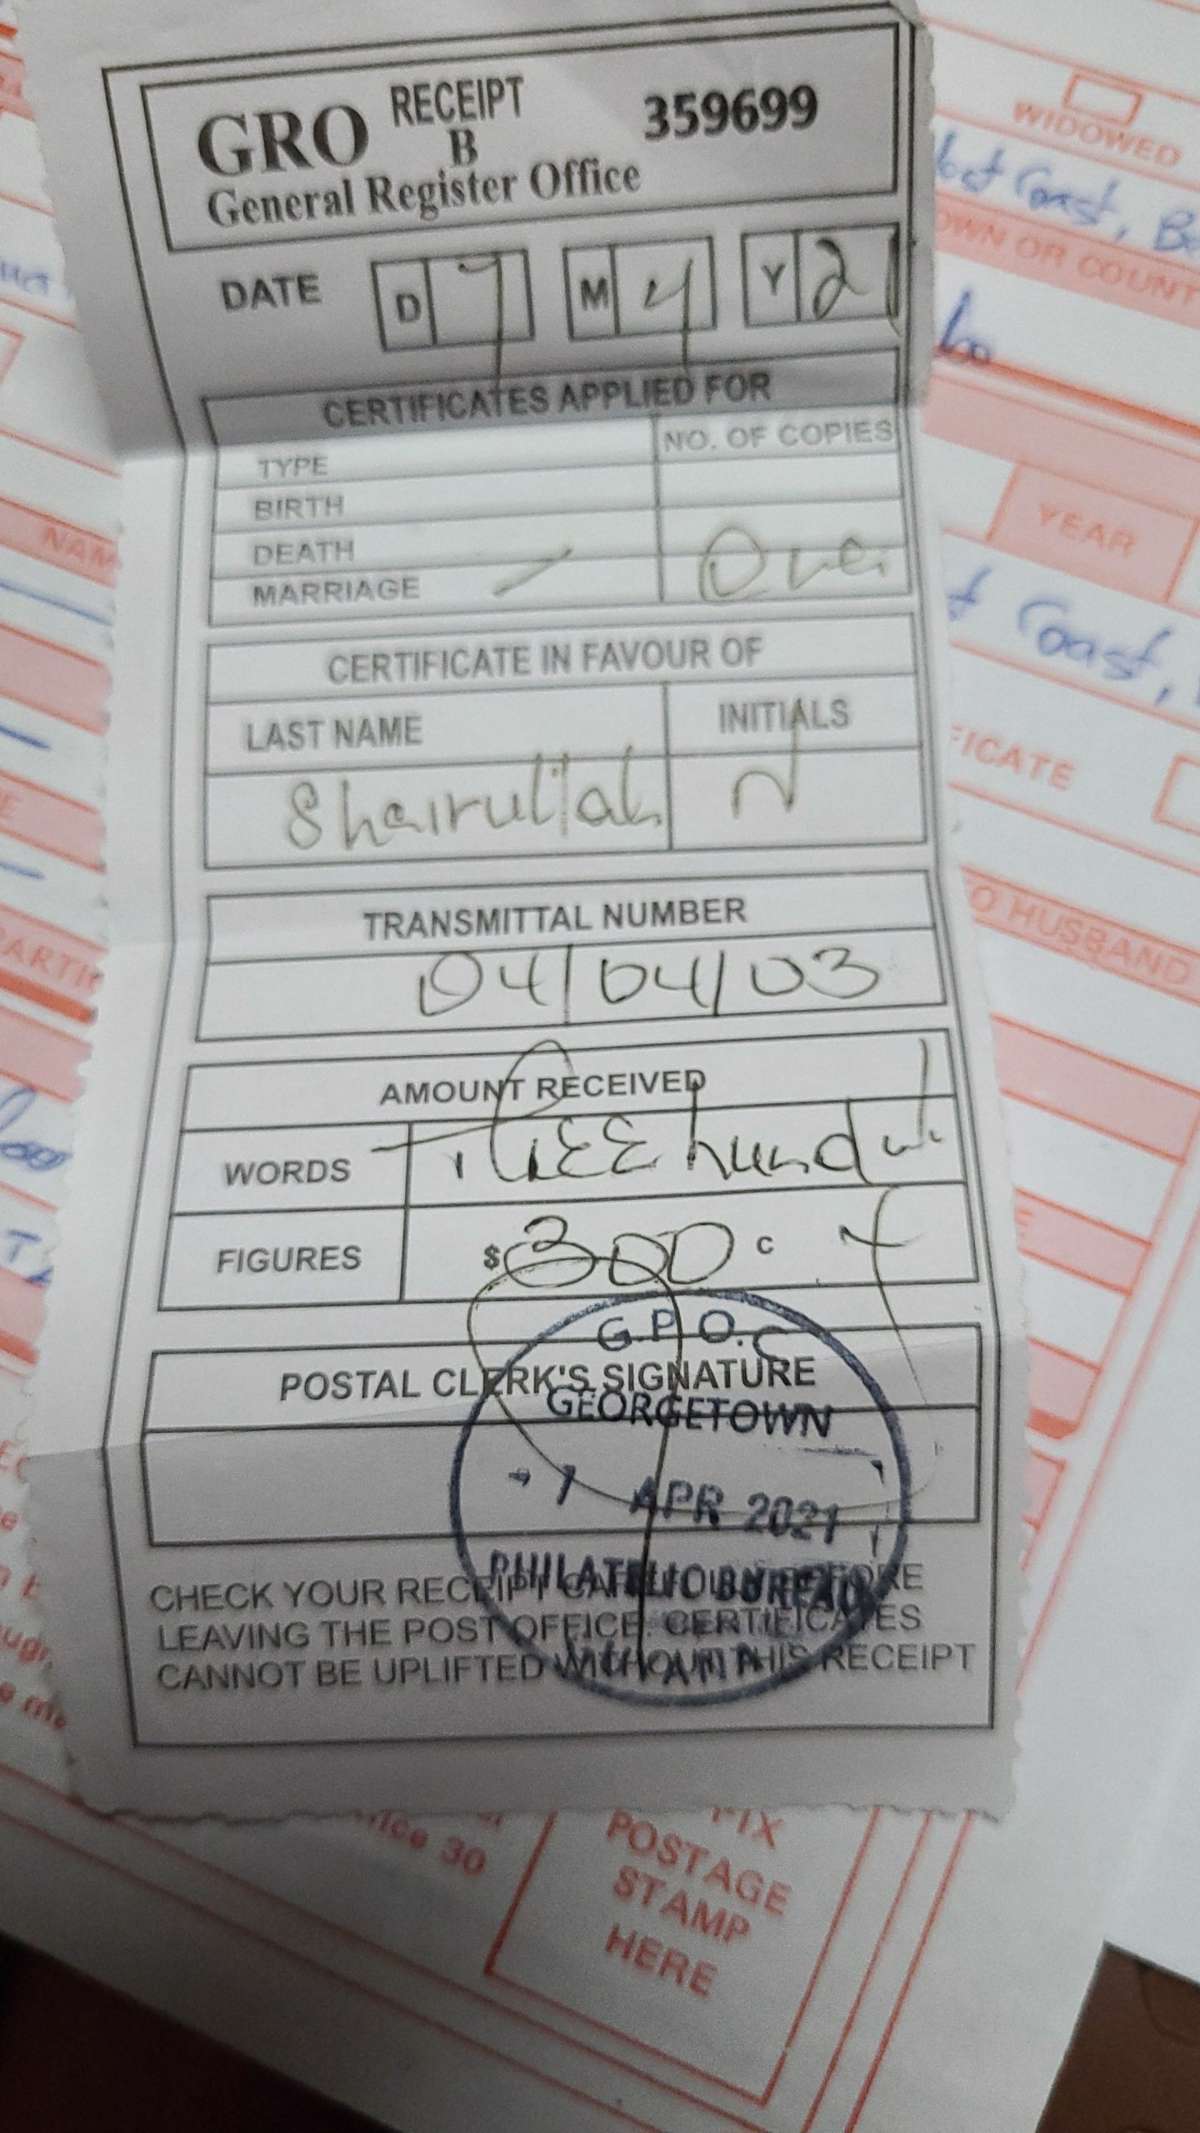 GRO RECEIPT 359699
B
General Register Office
DATE D 7 M 4 Y 21
CERTIFICATES APPLIED FOR
TYPE NO. OF COPIES
BIRTH
DEATH
MARRIAGE One
CERTIFICATE IN FAVOUR OF
LAST NAME INITIALS
Shairullah N
TRANSMITTAL NUMBER
04/04/03
AMOUNT RECEIVED
WORDS Three hundred
FIGURES $ 300 C
POSTAL CLERK'S SIGNATURE
G.P.O.
GEORGETOWN
7 APR 2021
PHILATELIC BUREAU
CHECK YOUR RECEIPT BEFORE
LEAVING THE POST OFFICE. CERTIFICATES
CANNOT BE UPLIFTED WITHOUT THIS RECEIPT
WIDOWED
Coast,
OWN OR COUNT
YEAR
Coast,
FICATE
O HUSBAND
NAM
PARTI
30
POSTAGE
STAMP
HERE